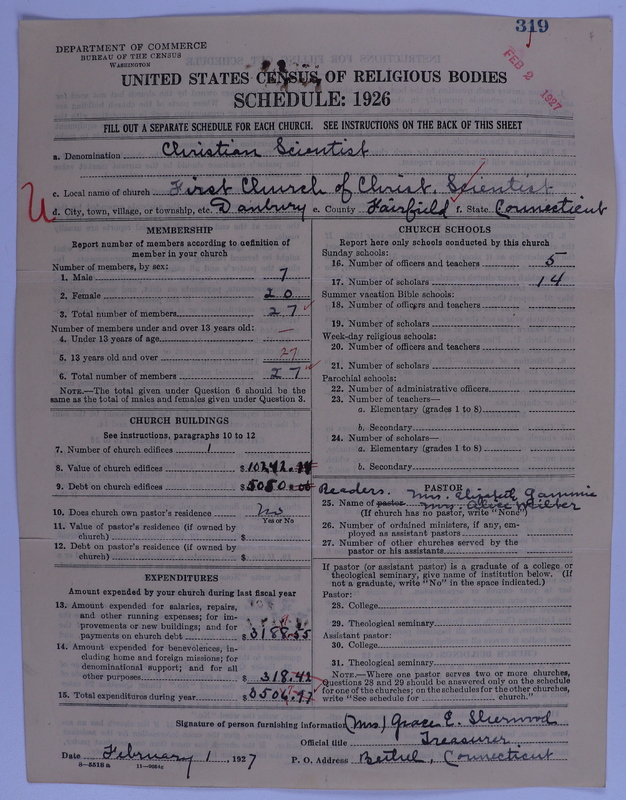 319
DEPARTMENT OF COMMERCE
BUREAU OF THE CENSUS
WASHINGTON
FEB 2 1927
UNITED STATES CENSUS OF RELIGIOUS BODIES
SCHEDULE: 1926
FILL OUT A SEPARATE SCHEDULE FOR EACH CHURCH. SEE INSTRUCTIONS ON THE BACK OF THIS SHEET
a. Denomination Christian Scientist
c. Local name of church First Church of Christ, Scientist
d. City, town, village, or township, etc. Danbury e. County Fairfield f. State Connecticut
MEMBERSHIP
Report number of members according to definition of
member in your church
Number of members, by sex:
1. Male 7
2. Female 20
3. Total number of members 27
Number of members under and over 13 years old:
4. Under 13 years of age —
5. 13 years old and over 27
6. Total number of members 27
NOTE.—The total given under Question 6 should be the
same as the total of males and females given under Question 3.
CHURCH BUILDINGS
See instructions, paragraphs 10 to 12
7. Number of church edifices 1
8. Value of church edifices $10242.
9. Debt on church edifices $5050.00
10. Does church own pastor's residence No
Yes or No
11. Value of pastor's residence (if owned by
church) $
12. Debt on pastor's residence (if owned by
church) $
EXPENDITURES
Amount expended by your church during last fiscal year
13. Amount expended for salaries, repairs,
and other running expenses; for im-
provements or new buildings; and for
payments on church debt $3188.55
14. Amount expended for benevolences, in-
cluding home and foreign missions; for
denominational support; and for all
other purposes $318.42
15. Total expenditures during year $3506.97
CHURCH SCHOOLS
Report here only schools conducted by this church
Sunday schools:
16. Number of officers and teachers 5
17. Number of scholars 14
Summer vacation Bible schools:
18. Number of officers and teachers
19. Number of scholars
Week-day religious schools:
20. Number of officers and teachers
21. Number of scholars
Parochial schools:
22. Number of administrative officers
23. Number of teachers—
a. Elementary (grades 1 to 8)
b. Secondary
24. Number of scholars—
a. Elementary (grades 1 to 8)
b. Secondary
PASTOR
Readers. Mrs. Elizabeth Gammie
25. Name of pastor Mrs. Alice Wilber
(If church has no pastor, write "None")
26. Number of ordained ministers, if any, em-
ployed as assistant pastors
27. Number of other churches served by the
pastor or his assistants
If pastor (or assistant pastor) is a graduate of a college or
theological seminary, give name of institution below. (If
not a graduate, write "No" in the space indicated.)
Pastor:
28. College
29. Theological seminary
Assistant pastor:
30. College
31. Theological seminary
NOTE.—Where one pastor serves two or more churches,
Questions 28 and 29 should be answered only on the schedule
for one of the churches; on the schedules for the other churches,
write "See schedule for church."
Signature of person furnishing information (Mrs) Grace E. Sherwood
Official title Treasurer
Date February 1, 1927 P. O. Address Bethel, Connecticut
8—5518a 11—9064c